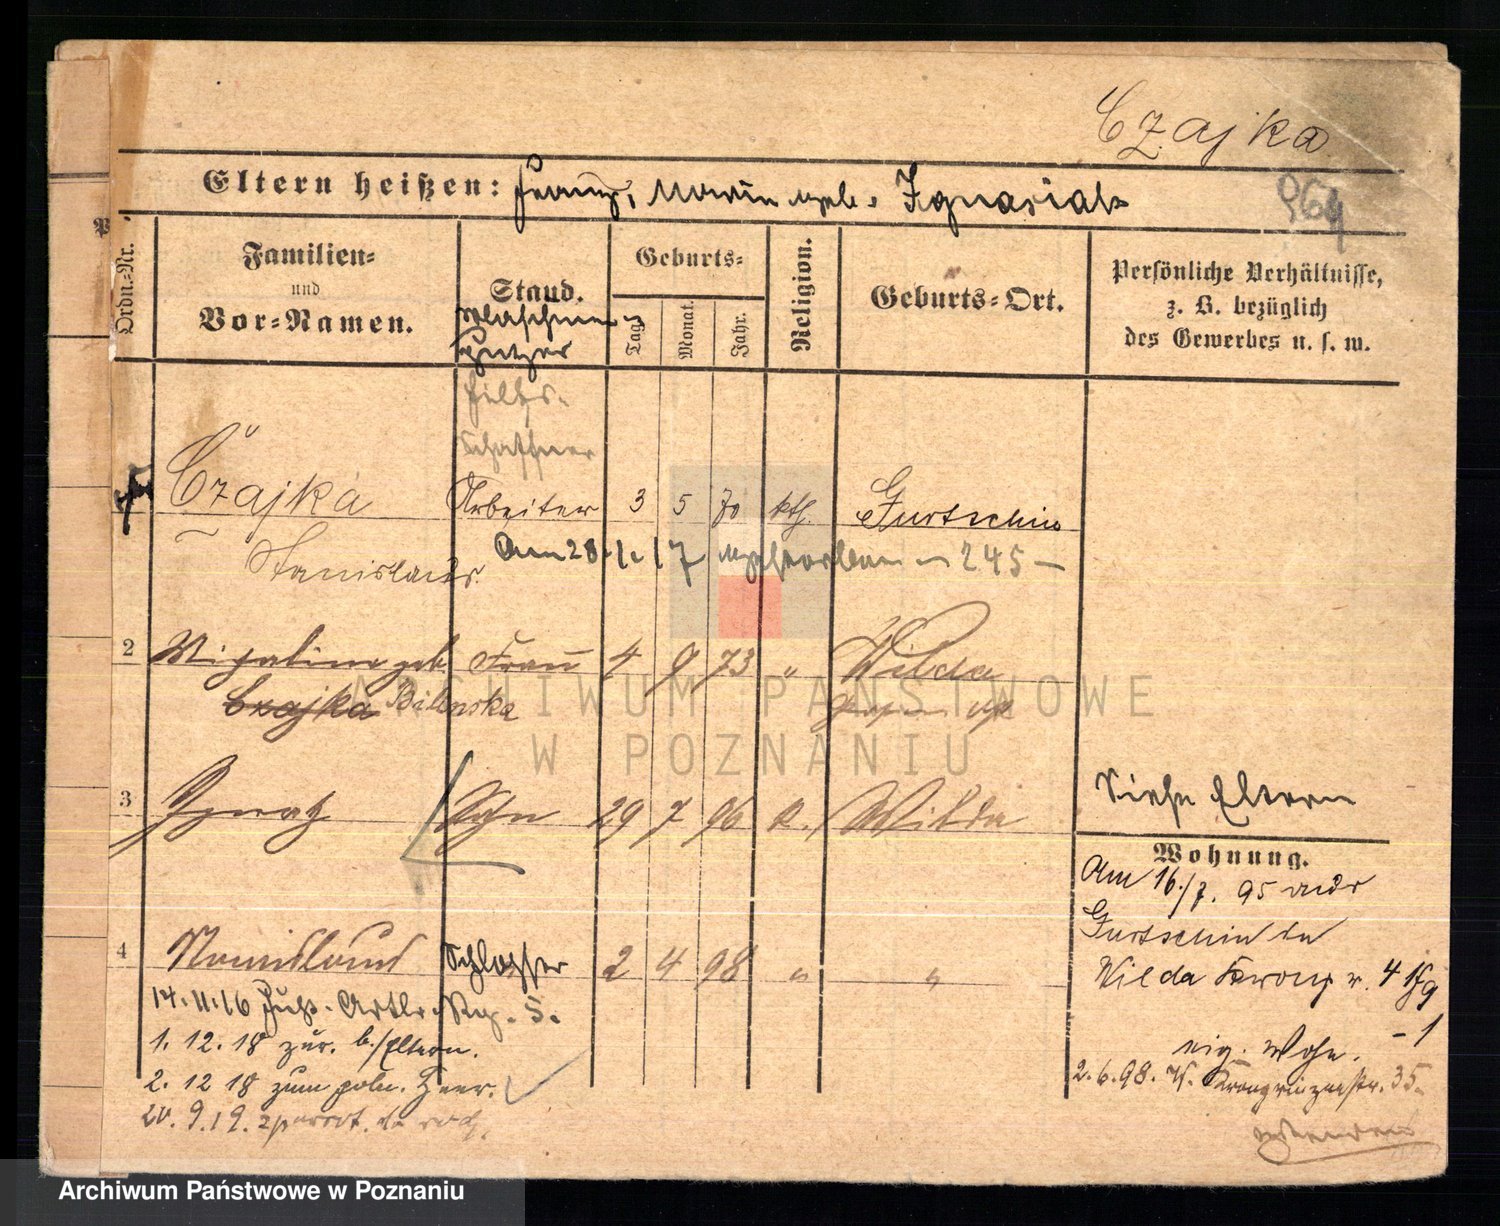 Czajka
964
Eltern heißen: Franz, Marie geb. Ignasiak
Ordn.-Nr.
Familien- und Vor-Namen.
Stand.
Geburts-
Tag.
Monat.
Jahr.
Religion.
Geburts-Ort.
Persönliche Verhältnisse, z. B. bezüglich des Gewerbes u. s. w.
Maschinen
Putzer
Hilfs-
Schaffner
Czajka Arbeiter 3 5 70 kth. Gurtschin
Stanislaus
Am 28.1.17 gestorben 245
2 geb. Frau 4 9 73 " Wilda
Czajka Bilinska
3 Ignatz Sohn 29 7 96 k. Wilda
Siehe Eltern
Wohnung.
Am 16./7. 95 aus
Gurtschin in
4 Schlosser 2 4 98 " "
Wilda
14.11.16 Fuß-Artlr. Rg. 5.
eig. Wohn.
1. 12. 18 zur. b./Eltern.
2.6.98. Kronprinzenstr. 35
2. 12 18 zum poln. Heer.
20. 9.19.
ARCHIWUM PAŃSTWOWE
W POZNANIU
Archiwum Państwowe w Poznaniu